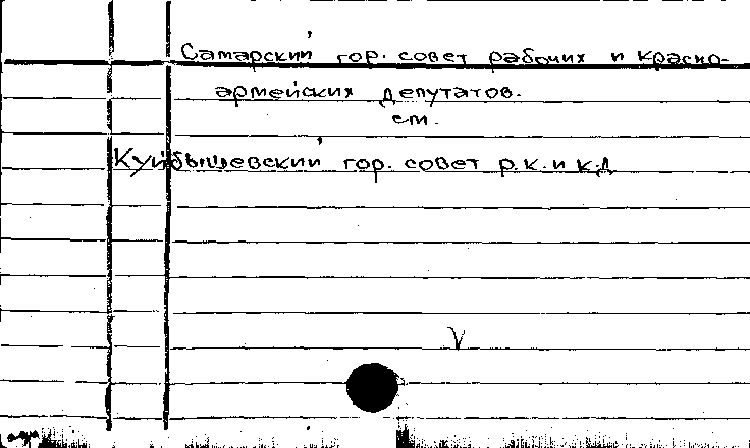 Самарский гор. совет рабочих и красно-
армейских депутатов.
см.
Куйбышевский гор. совет р.к. и к.д
V